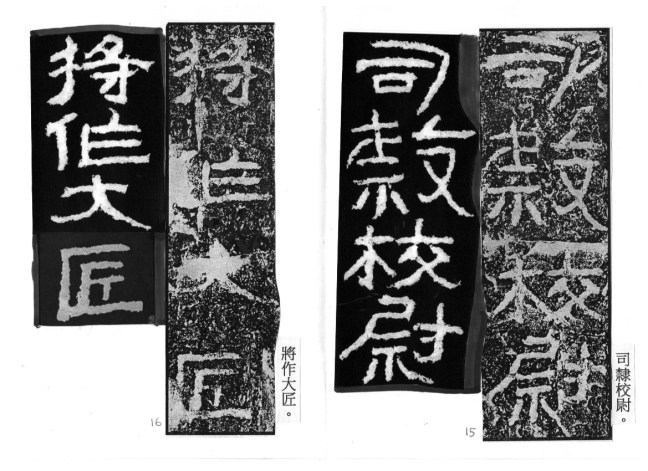 司隸校尉。
司隸校尉
司隸校尉
15
將作大匠。
將作大匠
將作大匠
16